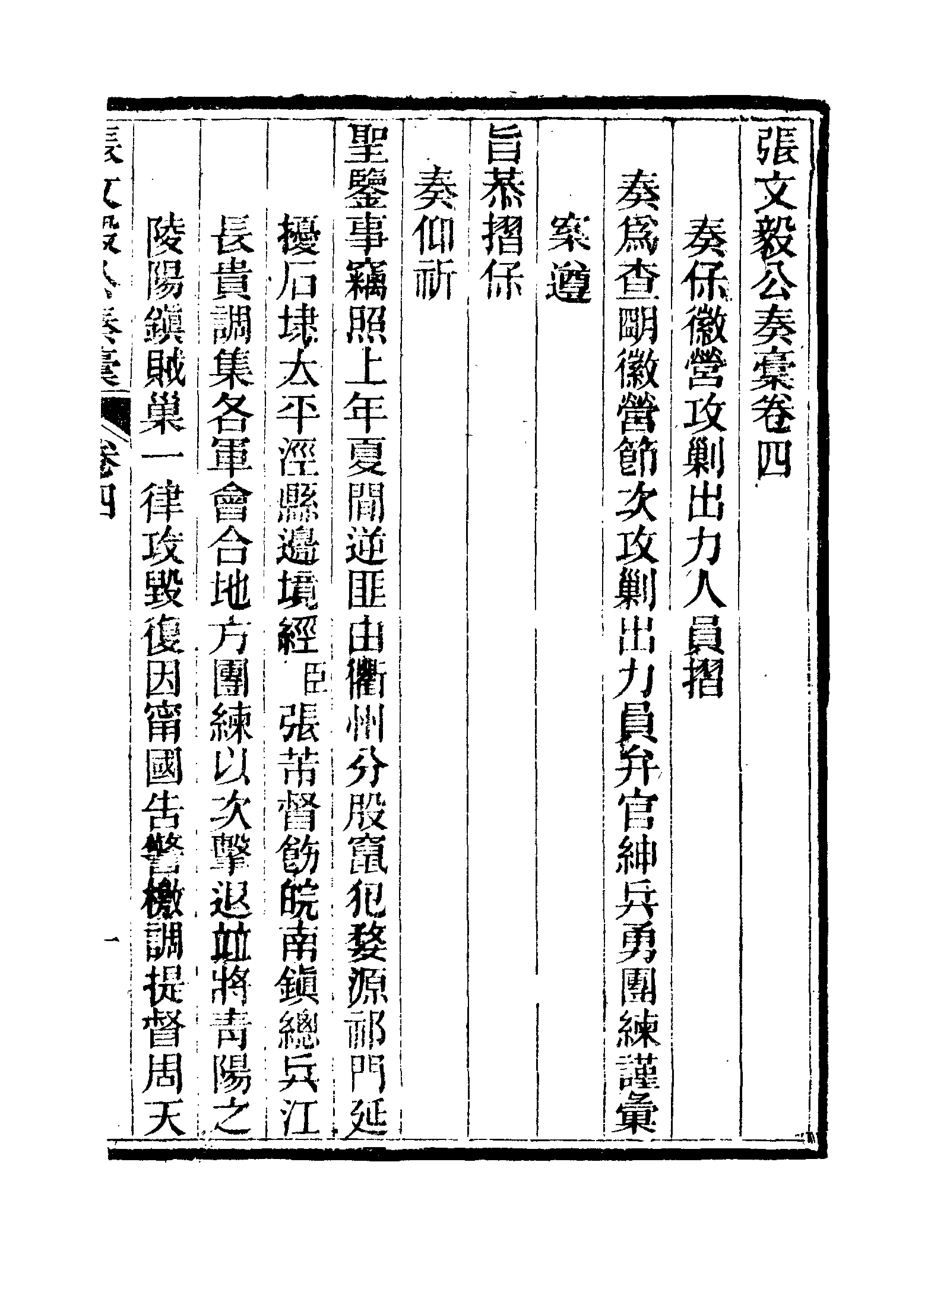 張文毅公奏稾卷四
奏保徽營攻剿出力人員摺
奏爲查明徽營節次攻剿出力員弁官紳兵勇團練謹彙
案遵
旨恭摺保
奏仰祈
聖鑒事竊照上年夏間逆匪由衢州分股竄犯婺源祁門延
擾石埭太平涇縣邊境經臣張芾督飭皖南鎭總兵江
長貴調集各軍會合地方團練以次擊退並將靑陽之
陵陽鎭賊巢一律攻毀復因甯國告警檄調提督周天
張文毅公奏稾 卷四 一